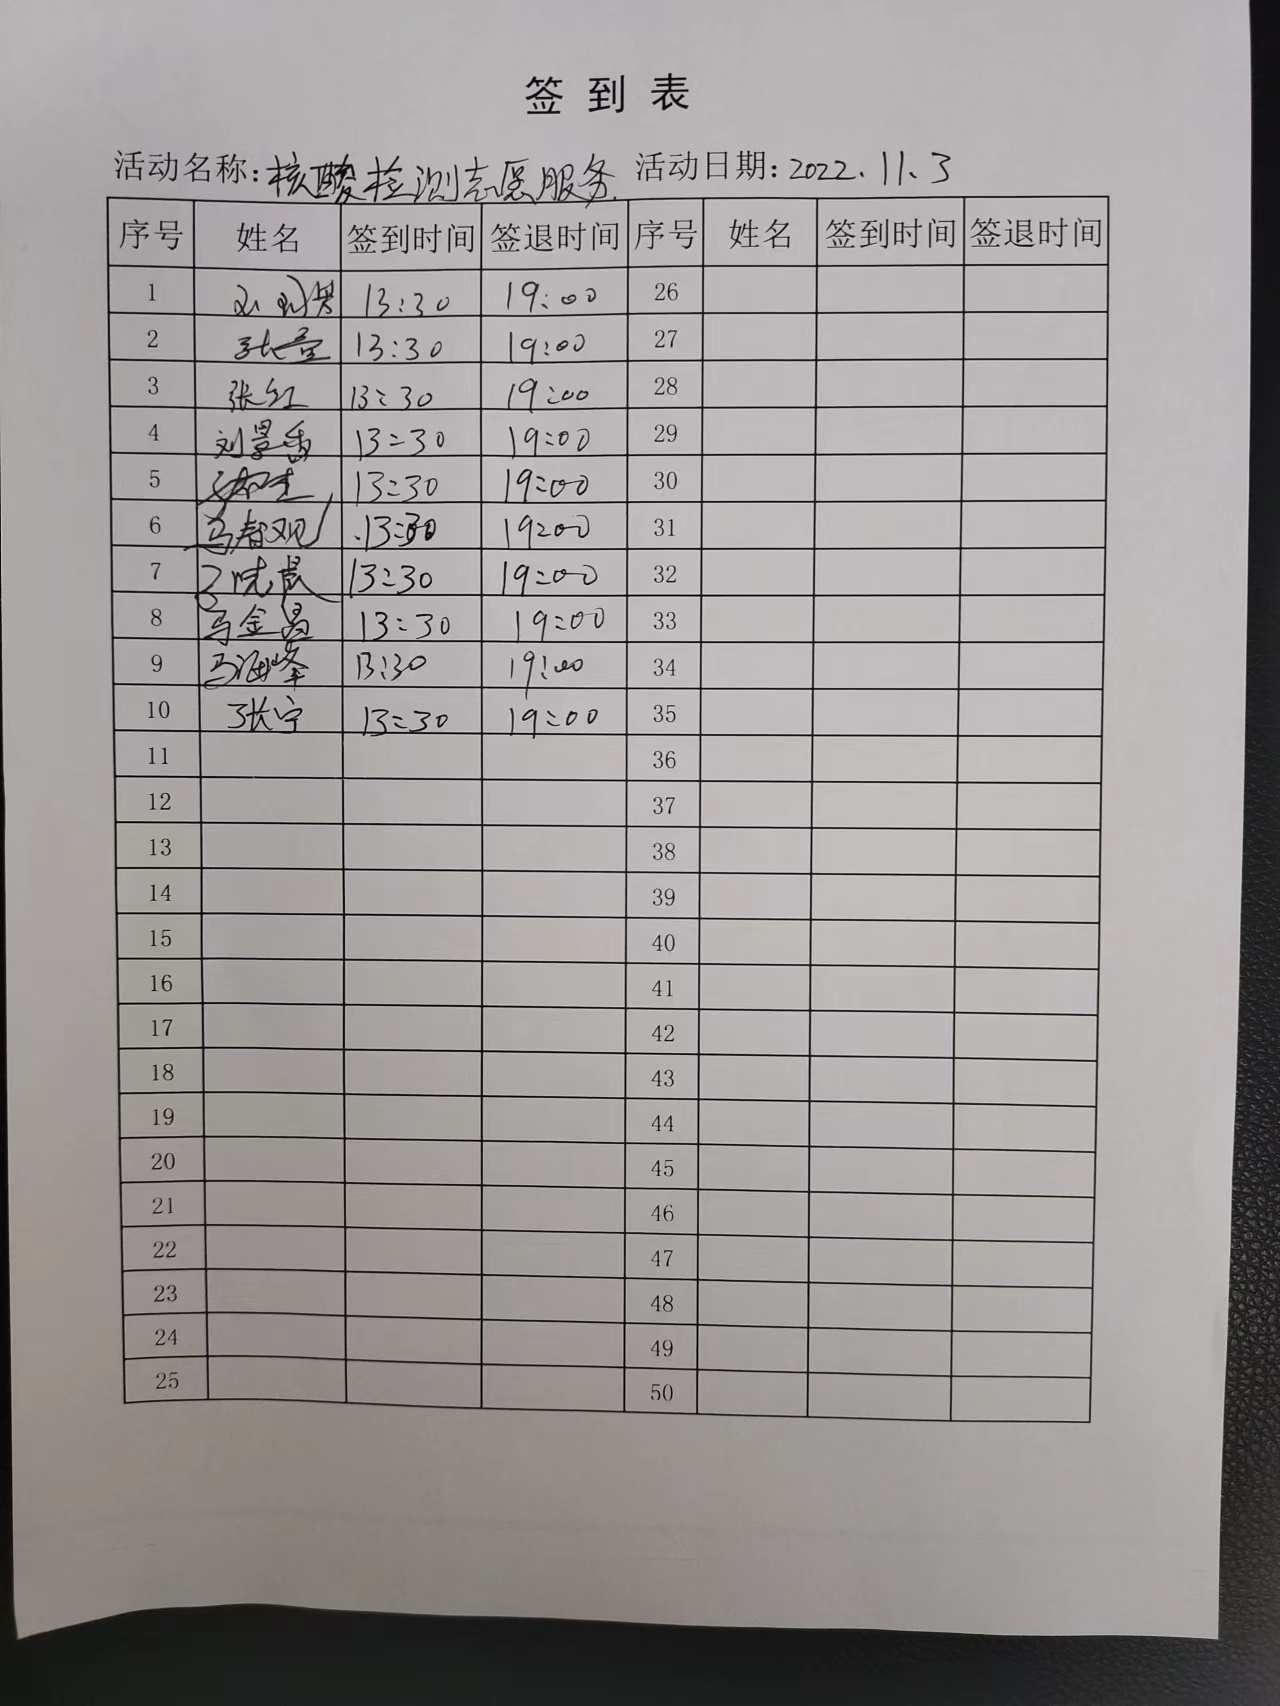 签到表
活动名称:核酸检测志愿服务 活动日期:2022.11.3
序号 姓名 签到时间 签退时间 序号 姓名 签到时间 签退时间
1 13:30 19:00 26
2 13:30 19:00 27
3 张红 13:30 19:00 28
4 刘景香 13:30 19:00 29
5 13:30 19:00 30
6 13:30 19:00 31
7 13:30 19:00 32
8 马金昌 13:30 19:00 33
9 马海峰 13:30 19:00 34
10 张宁 13:30 19:00 35
11 36
12 37
13 38
14 39
15 40
16 41
17 42
18 43
19 44
20 45
21 46
22 47
23 48
24 49
25 50